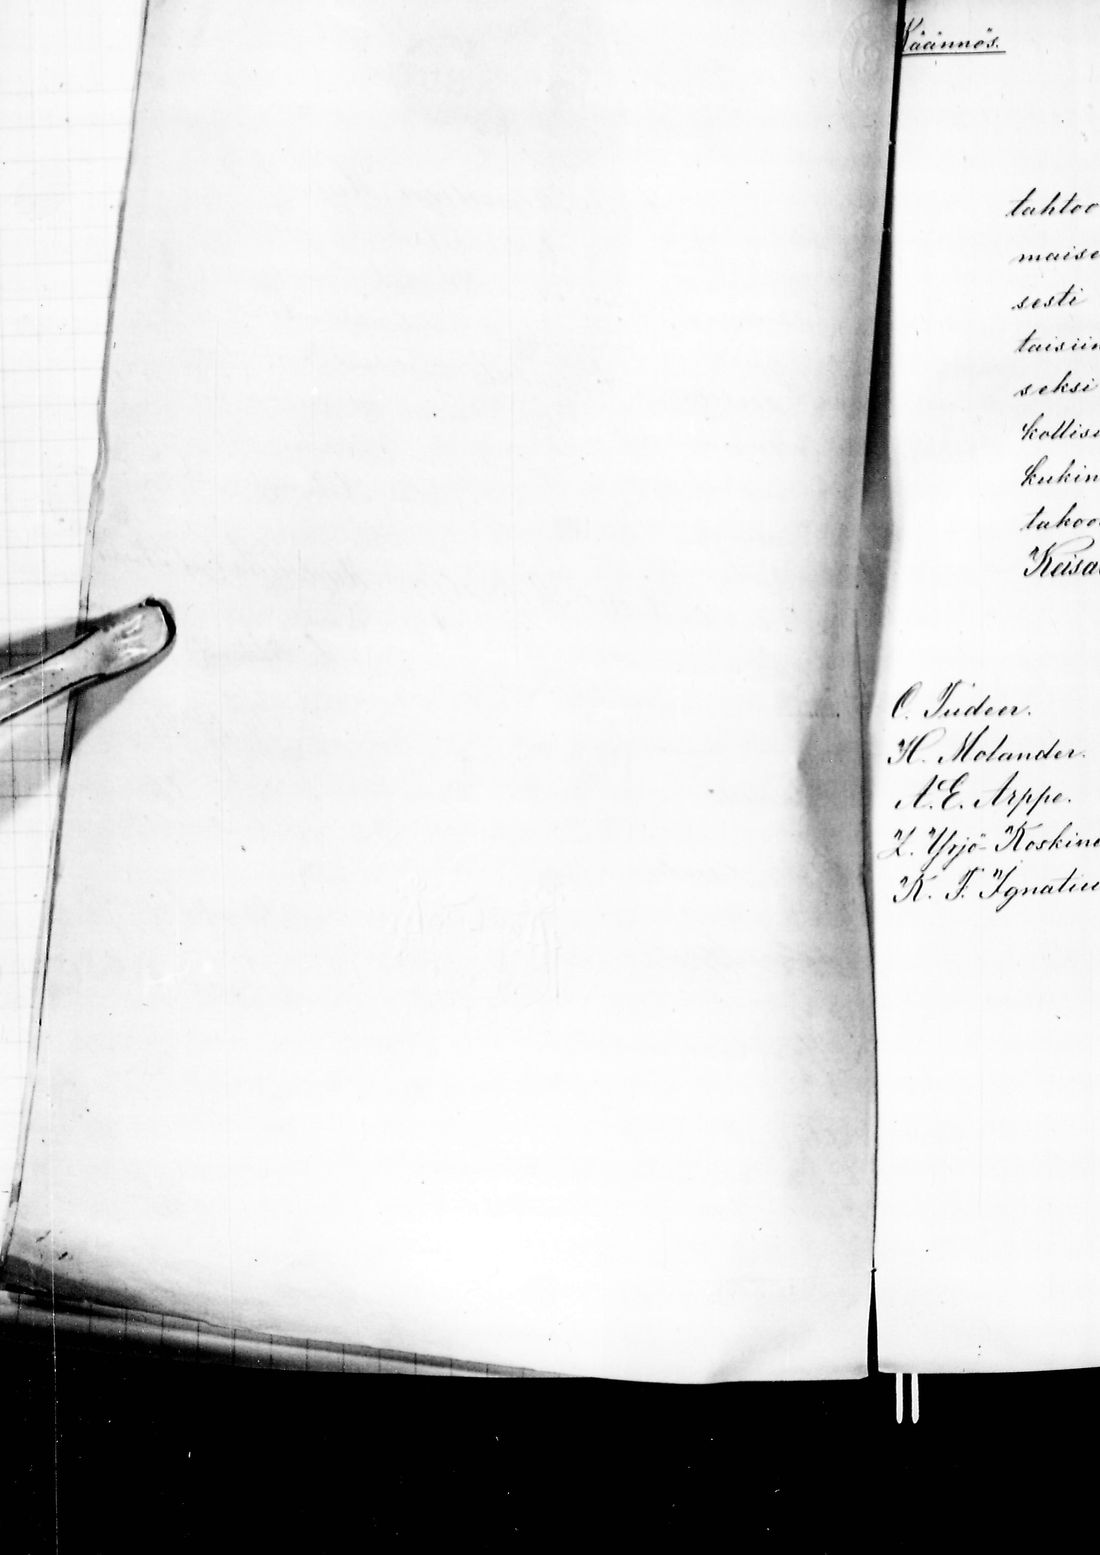 Käännös.
tahtoo
maise
sesti
taisiin
seksi
kukin
Keisa
O. Tudeer.
H. Molander.
A. E. Arppe.
Z. Yrjö-Koskine
K. F. Ignatiu